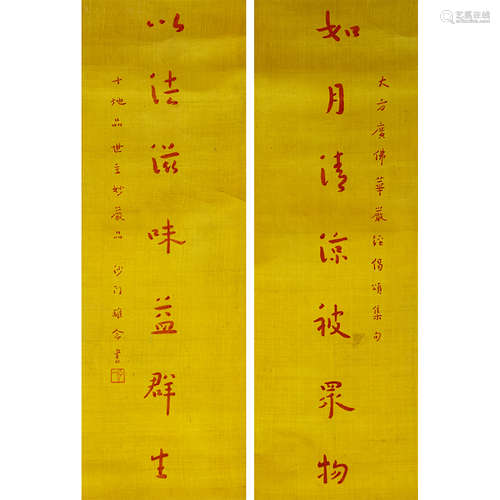 如月清涼被眾物
大方廣佛華嚴經偈頌集句
以法滋味益群生
十地品世主妙嚴品 沙門雄念書
艺狐在线